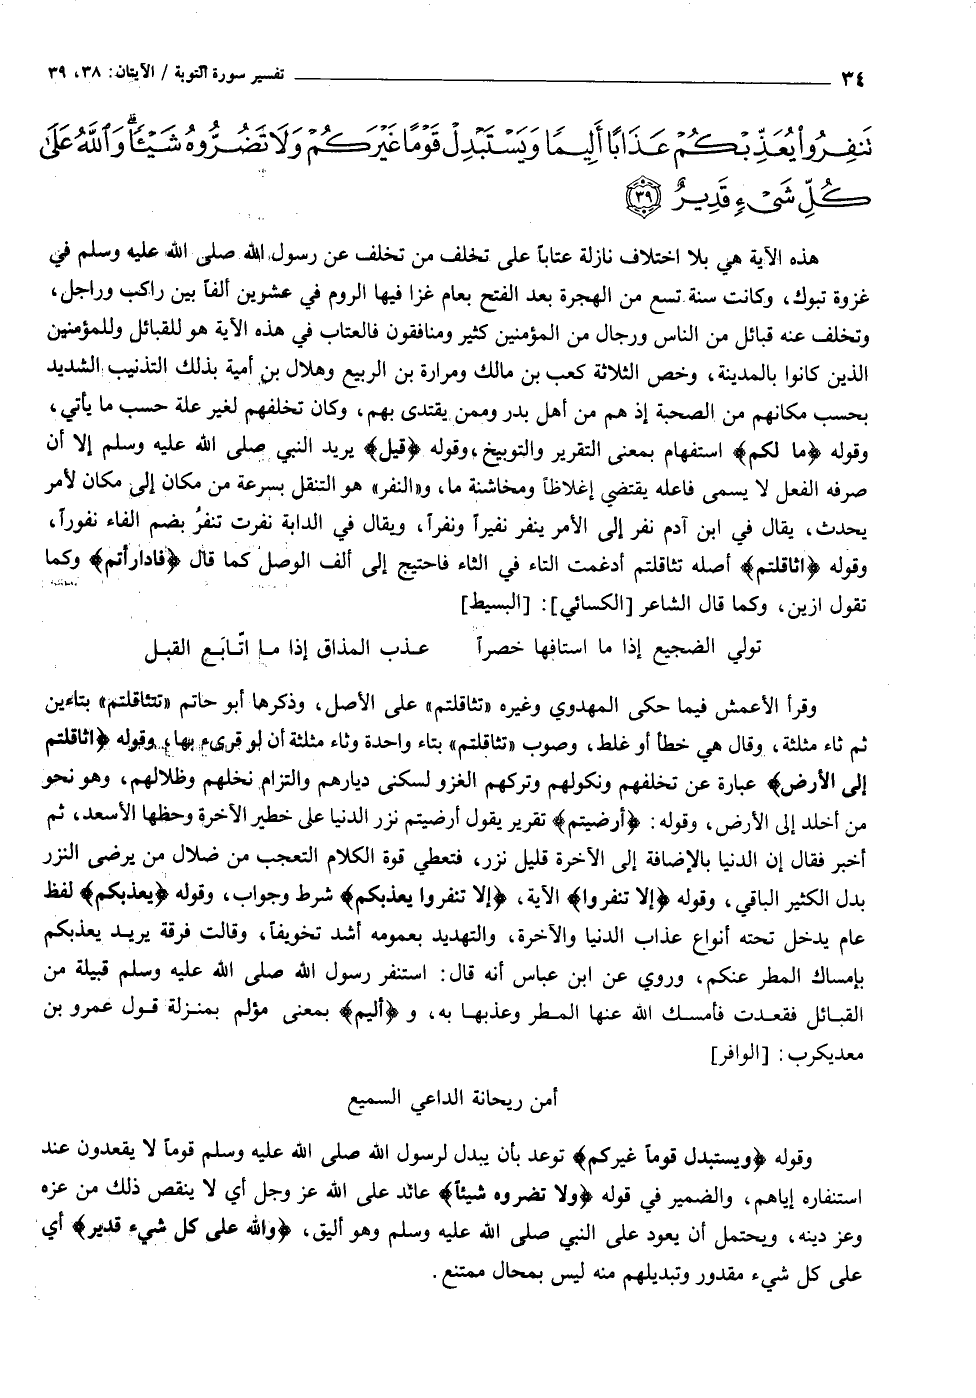 ٣٤ ــــــــــــــــــــ تفسير سورة التوبة / الآيتان: ٣٨، ٣٩
تَنفِرُوا۟ يُعَذِّبْكُمْ عَذَابًا أَلِيمًا وَيَسْتَبْدِلْ قَوْمًا غَيْرَكُمْ وَلَا تَضُرُّوهُ شَيْـًٔا ۗ وَٱللَّهُ عَلَىٰ
كُلِّ شَىْءٍ قَدِيرٌ ﴿٣٩﴾
هذه الآية هي بلا اختلاف نازلة عتاباً على تخلف من تخلف عن رسول الله صلى الله عليه وسلم في
غزوة تبوك، وكانت سنة تسع من الهجرة بعد الفتح بعام غزا فيها الروم في عشرين ألفاً بين راكب وراجل،
وتخلف عنه قبائل من الناس ورجال من المؤمنين كثير ومنافقون فالعتاب في هذه الآية هو للقبائل وللمؤمنين
الذين كانوا بالمدينة، وخص الثلاثة كعب بن مالك ومرارة بن الربيع وهلال بن أمية بذلك التذنيب الشديد
بحسب مكانهم من الصحبة إذ هم من أهل بدر وممن يقتدى بهم، وكان تخلفهم لغير علة حسب ما يأتي،
وقوله ﴿ما لكم﴾ استفهام بمعنى التقرير والتوبيخ، وقوله ﴿قيل﴾ يريد النبي صلى الله عليه وسلم إلا أن
صرفه الفعل لا يسمى فاعله يقتضي إغلاظاً ومخاشنة ما، و«النفر» هو التنقل بسرعة من مكان إلى مكان لأمر
يحدث، يقال في ابن آدم نفر إلى الأمر ينفر نفيراً ونفراً، ويقال في الدابة نفرت تنفرُ بضم الفاء نفوراً،
وقوله ﴿اثاقلتم﴾ أصله تثاقلتم أدغمت التاء في الثاء فاحتيج إلى ألف الوصل كما قال ﴿فادارأتم﴾ وكما
تقول ازين، وكما قال الشاعر [الكسائي]: [البسيط]
تولي الضجيع إذا ما استافها خصراً عذب المذاق إذا ما اتّابَع القبل
وقرأ الأعمش فيما حكى المهدوي وغيره «تثاقلتم» على الأصل، وذكرها أبو حاتم «تتثاقلتم» بتاءين
ثم ثاء مثلثة، وقال هي خطأ أو غلط، وصوب «تثاقلتم» بتاء واحدة وثاء مثلثة أن لو قرىء بها، وقوله ﴿اثاقلتم
إلى الأرض﴾ عبارة عن تخلفهم ونكولهم وتركهم الغزو لسكنى ديارهم والتزام نخلهم وظلالهم، وهو نحو
من أخلد إلى الأرض، وقوله: ﴿أرضيتم﴾ تقرير يقول أرضيتم نزر الدنيا على خطير الآخرة وحظها الأسعد، ثم
أخبر فقال إن الدنيا بالإضافة إلى الآخرة قليل نزر، فتعطي قوة الكلام التعجب من ضلال من يرضى النزر
بدل الكثير الباقي، وقوله ﴿إلا تنفروا﴾ الآية، ﴿إلا تنفروا يعذبكم﴾ شرط وجواب، وقوله ﴿يعذبكم﴾ لفظ
عام يدخل تحته أنواع عذاب الدنيا والآخرة، والتهديد بعمومه أشد تخويفاً، وقالت فرقة يريد يعذبكم
بإمساك المطر عنكم، وروي عن ابن عباس أنه قال: استنفر رسول الله صلى الله عليه وسلم قبيلة من
القبائل فقعدت فأمسك الله عنها المطر وعذبها به، و ﴿أليم﴾ بمعنى مؤلم بمنزلة قول عمرو بن
معديكرب: [الوافر]
أمن ريحانة الداعي السميع
وقوله ﴿ويستبدل قوماً غيركم﴾ توعد بأن يبدل لرسول الله صلى الله عليه وسلم قوماً لا يقعدون عند
استنفاره إياهم، والضمير في قوله ﴿ولا تضروه شيئاً﴾ عائد على الله عز وجل أي لا ينقص ذلك من عزه
وعز دينه، ويحتمل أن يعود على النبي صلى الله عليه وسلم وهو أليق، ﴿والله على كل شيء قدير﴾ أي
على كل شيء مقدور وتبديلهم منه ليس بمحال ممتنع.